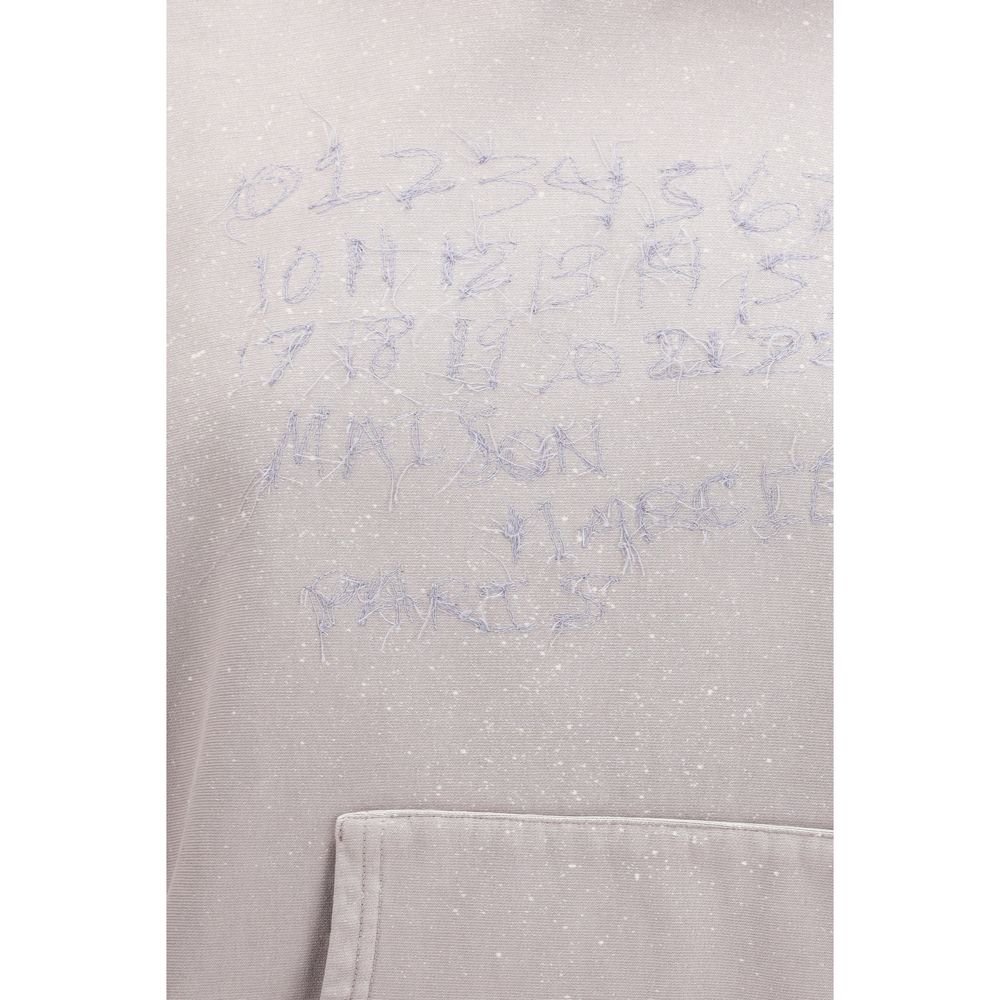 0 1 2 3 4 5 6
10 11 12 13 14 15
17 18 19 20 21 22
MAISON
PARIS